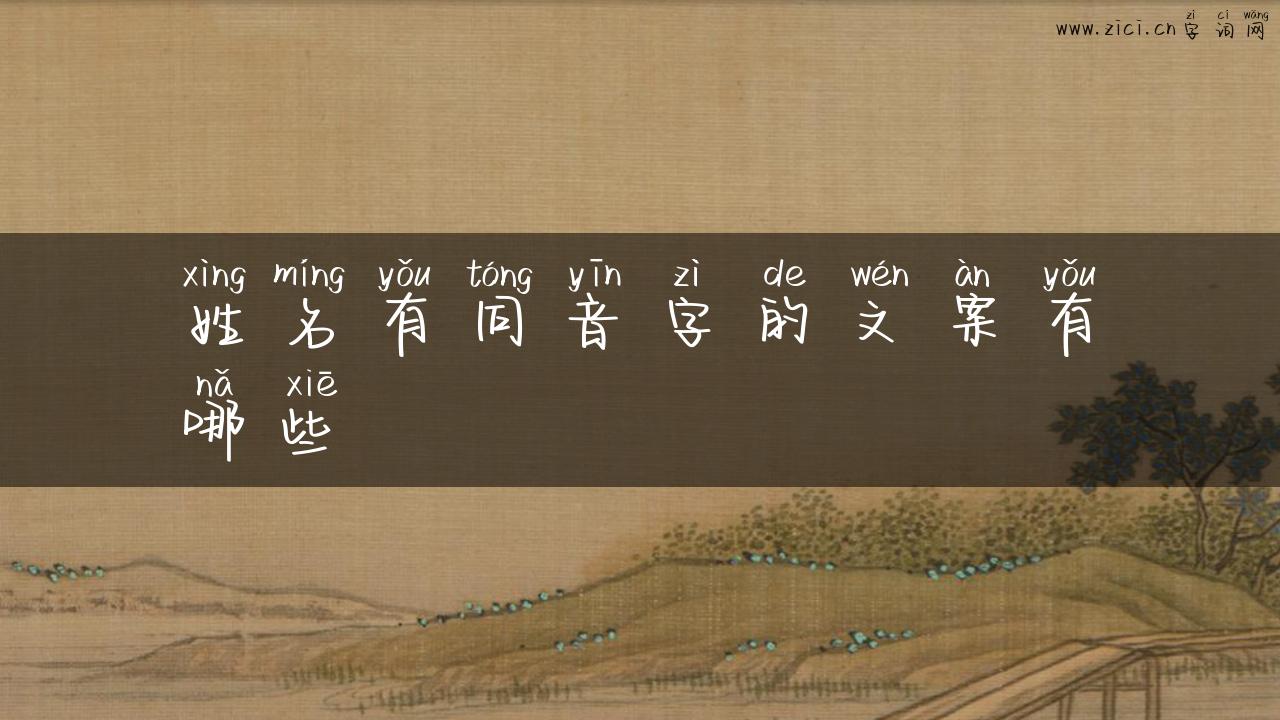 zì cí wǎng
www.zici.cn字词网
xìng míng yǒu tóng yīn zì de wén àn yǒu
姓名有同音字的文案有
nǎ xiē
哪些